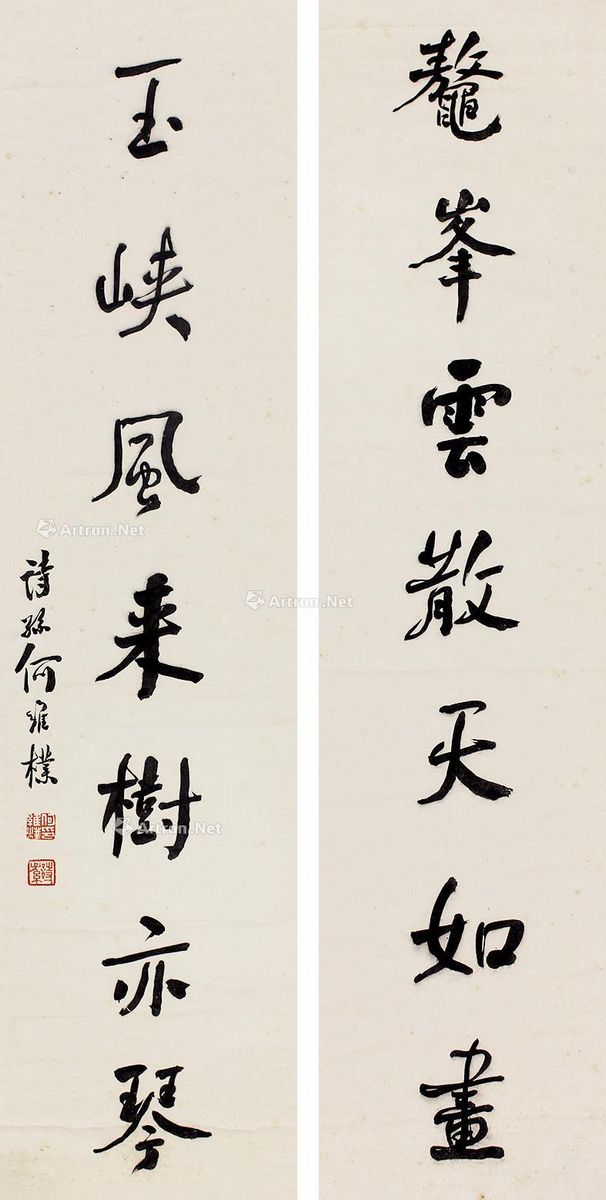 鼇峯雲散天如畫
玉峽風来樹亦琴
詩孫何維樸
Artron.Net
Artron.Net
Artron.Net